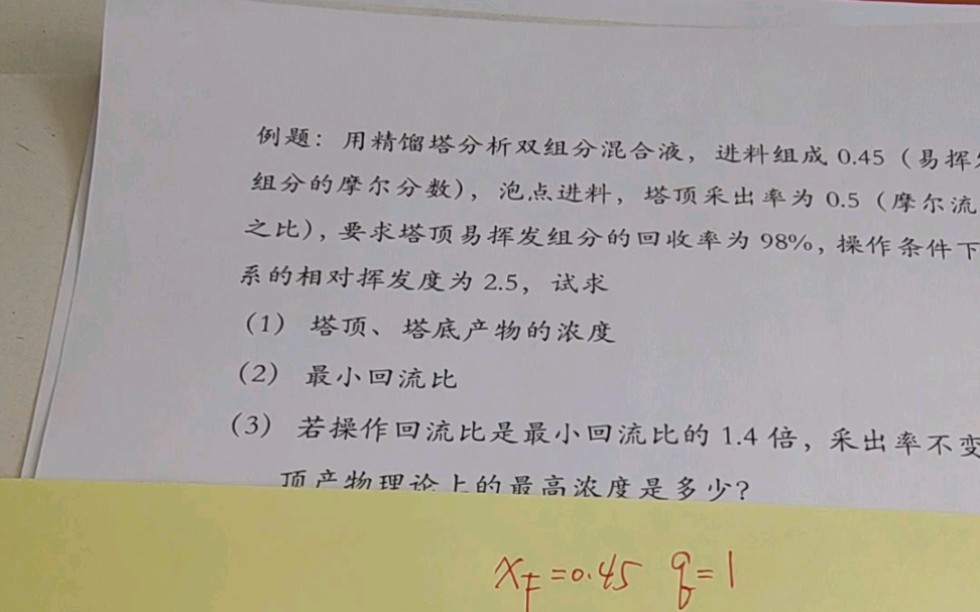 例题：用精馏塔分析双组分混合液，进料组成 0.45（易挥发
组分的摩尔分数），泡点进料，塔顶采出率为 0.5（摩尔流
之比），要求塔顶易挥发组分的回收率为 98%，操作条件下
系的相对挥发度为 2.5，试求
（1） 塔顶、塔底产物的浓度
（2） 最小回流比
（3） 若操作回流比是最小回流比的 1.4 倍，采出率不变
顶产物理论上的最高浓度是多少？
x_F=0.45 q=1